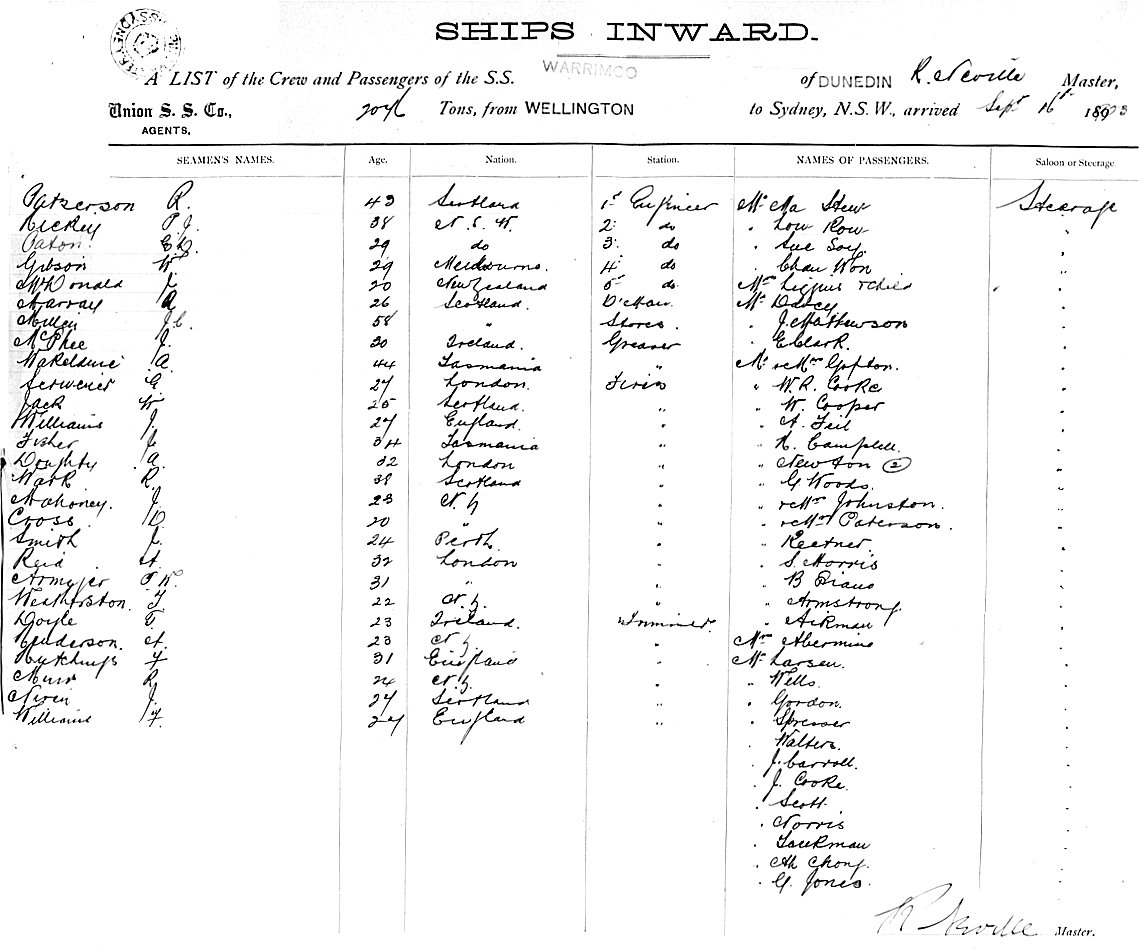 SHIPS INWARD.
WARRIMOO
A LIST of the Crew and Passengers of the S.S. of DUNEDIN R. Neville Master,
Union S. S. Co., Tons, from WELLINGTON to Sydney, N.S.W., arrived Sept 16th
AGENTS,
SEAMEN'S NAMES. Age. Nation. Station. NAMES OF PASSENGERS. Saloon or Steerage
Paterson R. 43 Scotland 1st Engineer Mr Ma Shew Steerage
Hickey P.J. 38 N.S.W. 2 do " Low Row "
Paton 29 do 3 do " Sue Soy "
Gibson W 29 Melbourne. 4 do " Chan Won "
McDonald J 20 New Zealand 5 do Mrs & child
Murray A 26 Scotland. Mr Darcy "
58 " Stores " J. Mathewson "
McPhee J. 30 Ireland. Greaser " E Clark "
A. 44 Tasmania " Mr & Mrs "
G 27 London. Fires " W. R. Cooke "
Jack W 25 Scotland. " " W. Cooper "
Williams J. 27 England. " " A. Feil "
Fisher 34 Tasmania " " Campbell "
Doughty A. 32 London " " Newton (2) "
Wark R. 38 Scotland " " G Woods "
Mahoney. J. 23 N.Z " " & Mrs Johnston. "
Cross D. 20 " " " & Mrs Paterson. "
Smith J. 24 Perth. " " "
Reid A. 32 London " " S. Morris "
31 " " " B "
Weatherston. 22 N.Z. " " Armstrong "
Doyle T. 23 Ireland. Trimmer. " Aikman "
Henderson. A. 23 N.Z " Mrs "
Hutchings F 31 England " Mr Larsen. "
Muir R. 24 N.Z. " " Wells. "
Niven J. 27 Scotland " " Gordon. "
Williams F. 27 England " " "
" Walters. "
" J. Carroll. "
" J. Cooke. "
" Scott "
" Norris "
" "
" Ah Chong. "
" G. Jones. "
R Neville Master.